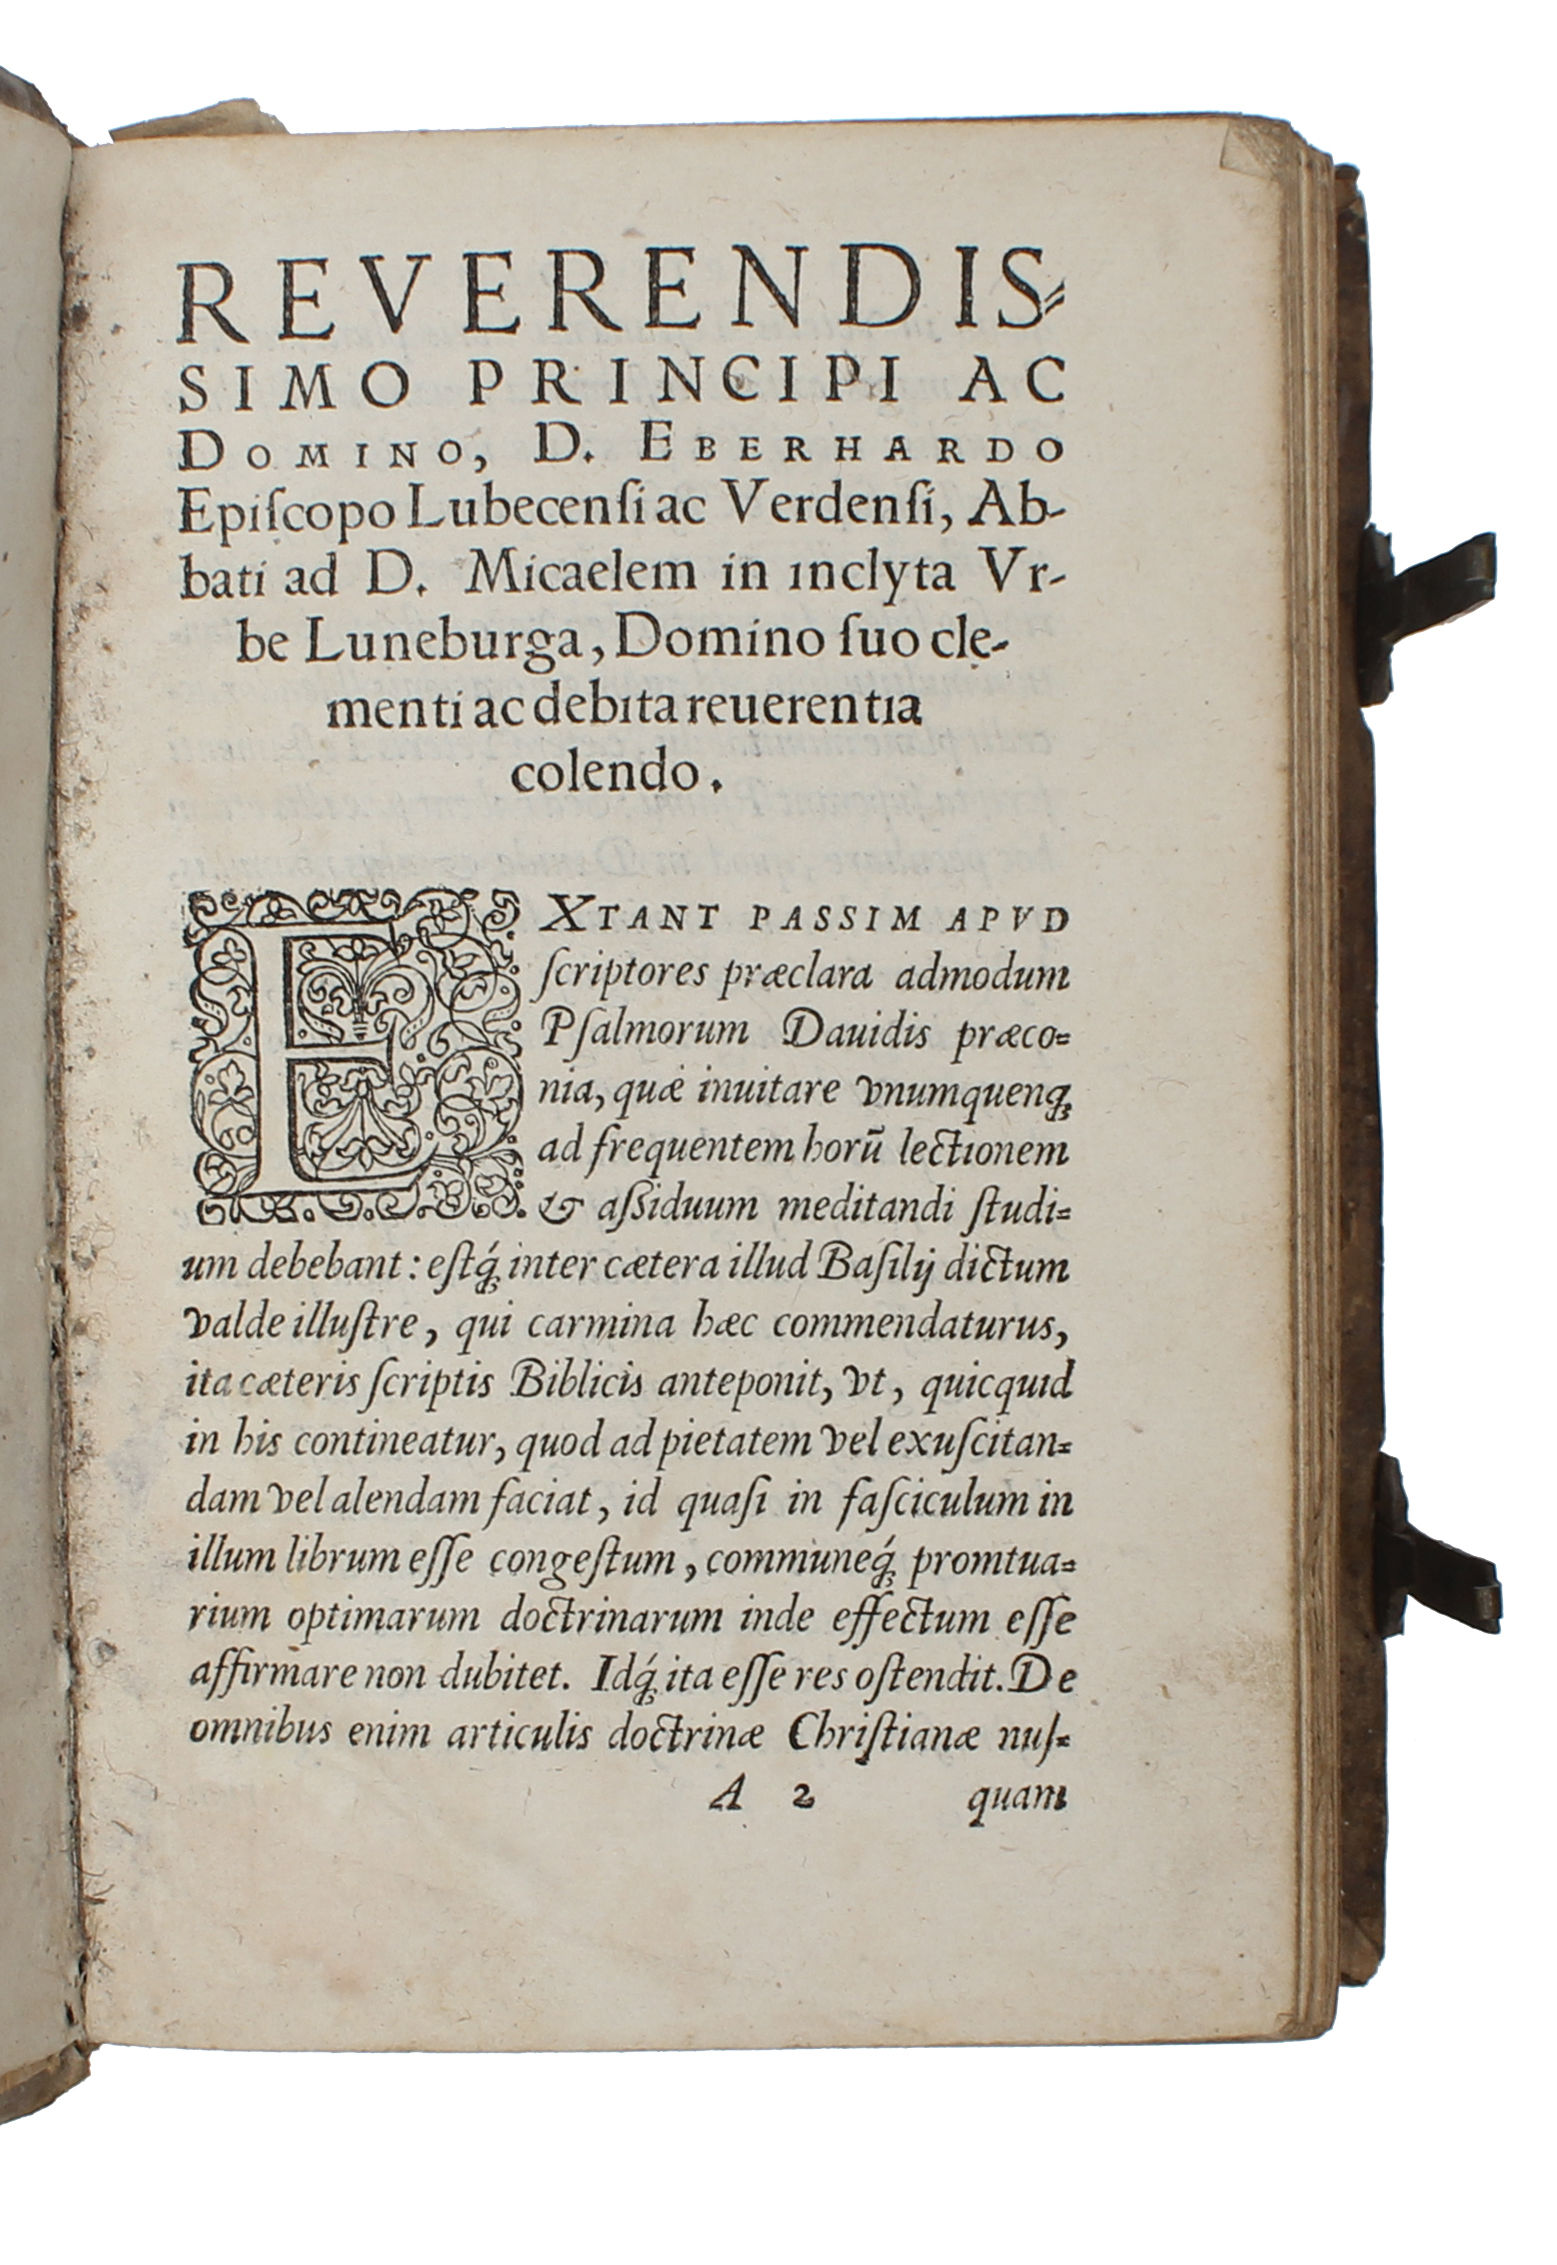 REVERENDIS⸗
SIMO PRINCIPI AC
DOMINO, D. EBERHARDO
Epiſcopo Lubecenſi ac Verdenſi, Ab-
bati ad D. Micaelem in inclyta Vr-
be Luneburga, Domino ſuo cle-
menti ac debita reuerentia
colendo.
EXTANT PASSIM APVD
ſcriptores præclara admodum
Pſalmorum Dauidis præco⸗
nia, quæ inuitare vnumquenq́
ad frequentem horū lectionem
& aſsiduum meditandi ſtudi⸗
um debebant: eſtq́ inter cætera illud Baſilij dictum
valde illuſtre, qui carmina hæc commendaturus,
ita cæteris ſcriptis Biblicis anteponit, vt, quicquid
in his contineatur, quod ad pietatem vel exuſcitan⸗
dam vel alendam faciat, id quaſi in faſciculum in
illum librum eſſe congeſtum, communeq́ promtua⸗
rium optimarum doctrinarum inde effectum eſſe
affirmare non dubitet. Idq́ ita eſſe res oſtendit. De
omnibus enim articulis doctrinæ Chriſtianæ nuſ⸗
A 2 quam